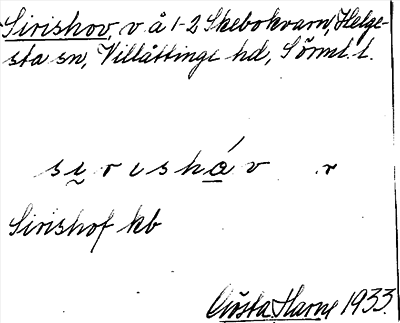 Sirishov, v å 1-2 Skebokvarn, Helge-
sta sn, Villåttinge hd, Sörml. l.
si̮rɩshá̱v r
Sirishof kb
Gösta Harne 1933.